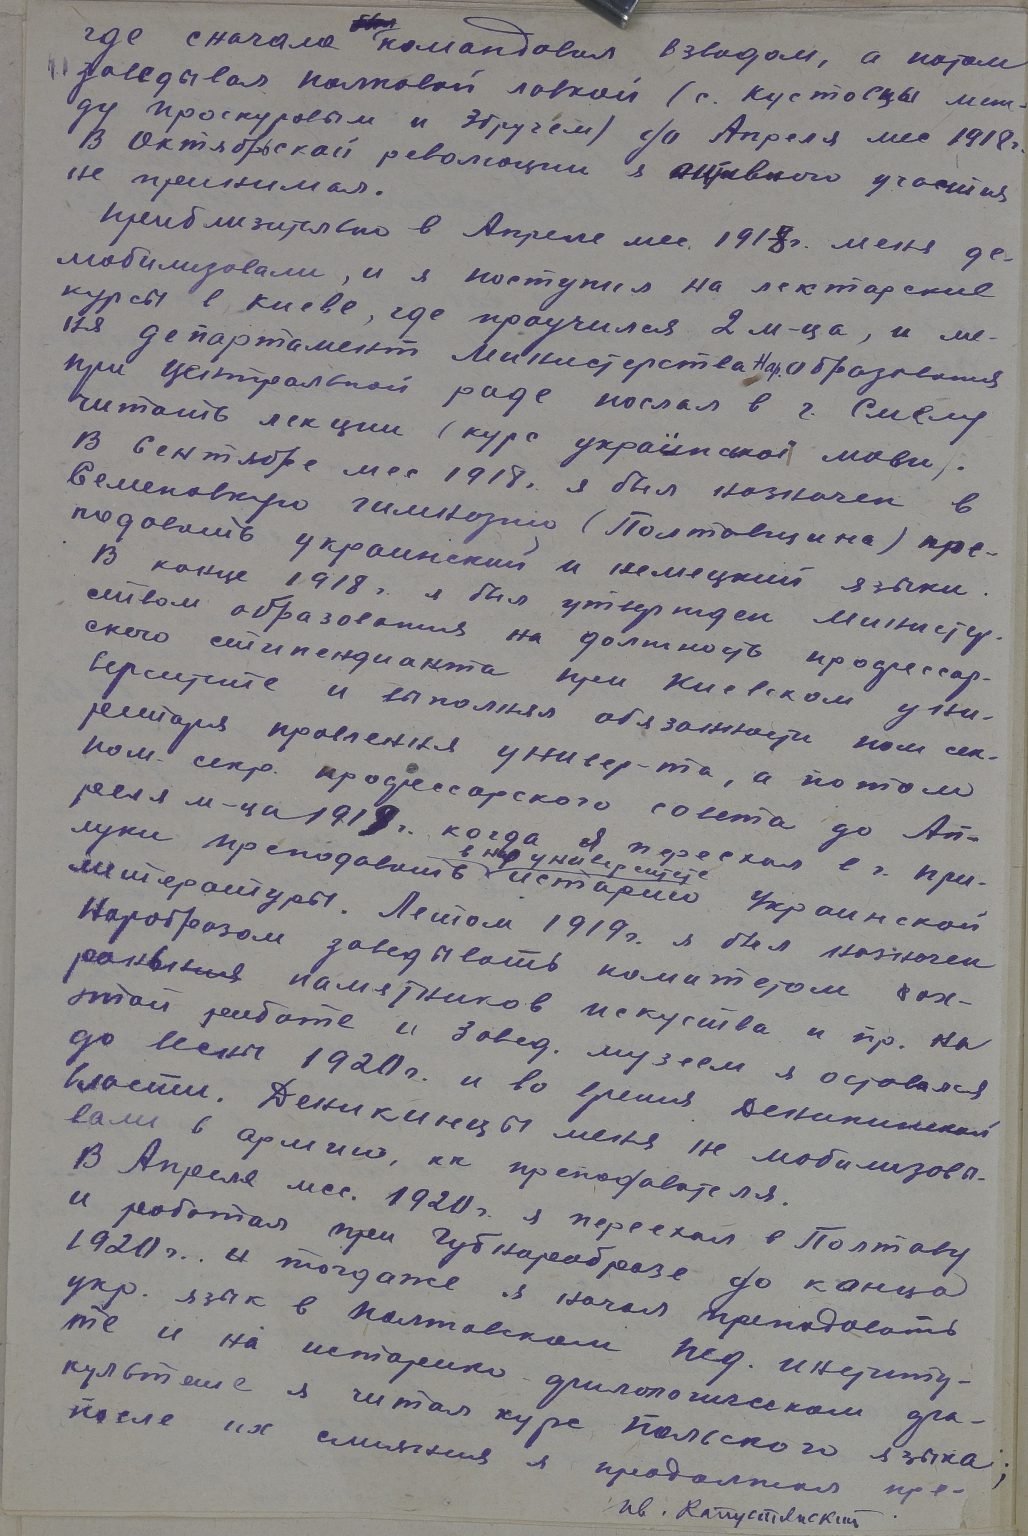 где сначала командовал взводом, а потом
заведывал полковой лавкой (с. Кустовцы меж-
ду Проскуровым и Збручем) до Апреля мес 1918 г.
В Октябрьской революции я активного участия
не принимал.
Приблизительно в Апреле мес. 1918 г. меня де-
мобилизовали, и я поступил на лекторские
курсы в Киеве, где проучился 2 м-ца, и ме-
ня департамент Министерства Нар. Образования
при Центральной раде послал в г. Смелу
читать лекции (курс української мови).
В Сентябре мес 1918 г. я был назначен в
Семеновскую гимназию (Полтавщина) пре-
подавать украинский и немецкий языки.
В конце 1918 г. я был утвержден Министер-
ством образования на должность профессор-
ского стипендианта при Киевском уни-
верситете и выполнял обязанности пом сек-
ретаря правления универ-та, а потом
пом. секр. профессорского совета до Ап-
реля м-ца 1919 г. когда я переехал в г. При-
луки преподавать в нар университете историю украинской
литературы. Летом 1919 г. я был назначен
Наробразом заведывать комитетом сох-
ранения памятников искуства и пр. На
этой работе и Завед. музеем я оставался
до весны 1920 г. и во время Деникинской
власти. Деникинцы меня не мобилизовы-
вали в армию, кк преподавателя.
В Апреле мес. 1920 г. я переехал в Полтаву
и работал при Губнаробразе до конца
1920 г. и тогда же я начал преподавать
укр. язык в Полтавском Пед. институ-
те и на историко-филологическом фа-
культете я читал курс Польского языка;
после их слияния я продолжал пре-
Ив. Капустянский